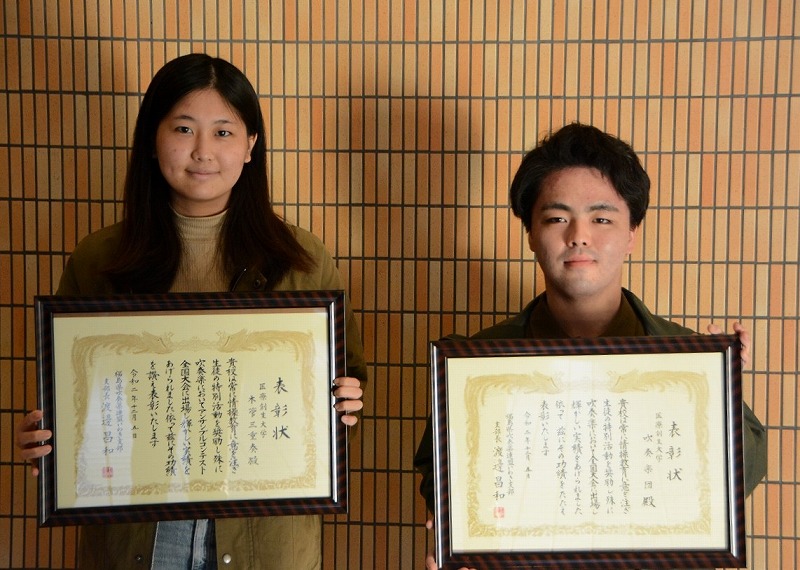 表彰状
医療創生大学
木管三重奏殿
貴校は常に情操教育に意を注ぎ
生徒の特別活動を奨励し殊に
吹奏楽においてアンサンブルコンテスト
全国大会に出場し輝かしい実績を
あげられました依って茲にその功績
を讃え表彰いたします
令和二年十二月五日
福島県吹奏楽連盟いわき支部
支部長 渡邉昌和
表彰状
医療創生大学
吹奏楽団殿
貴校は常に情操教育に意を注ぎ
生徒の特別活動を奨励し殊に
吹奏楽において全国大会に出場し
輝かしい実績をあげられました
依って茲にその功績をたたえ
表彰いたします
令和二年十二月五日
福島県吹奏楽連盟いわき支部
支部長 渡邉昌和